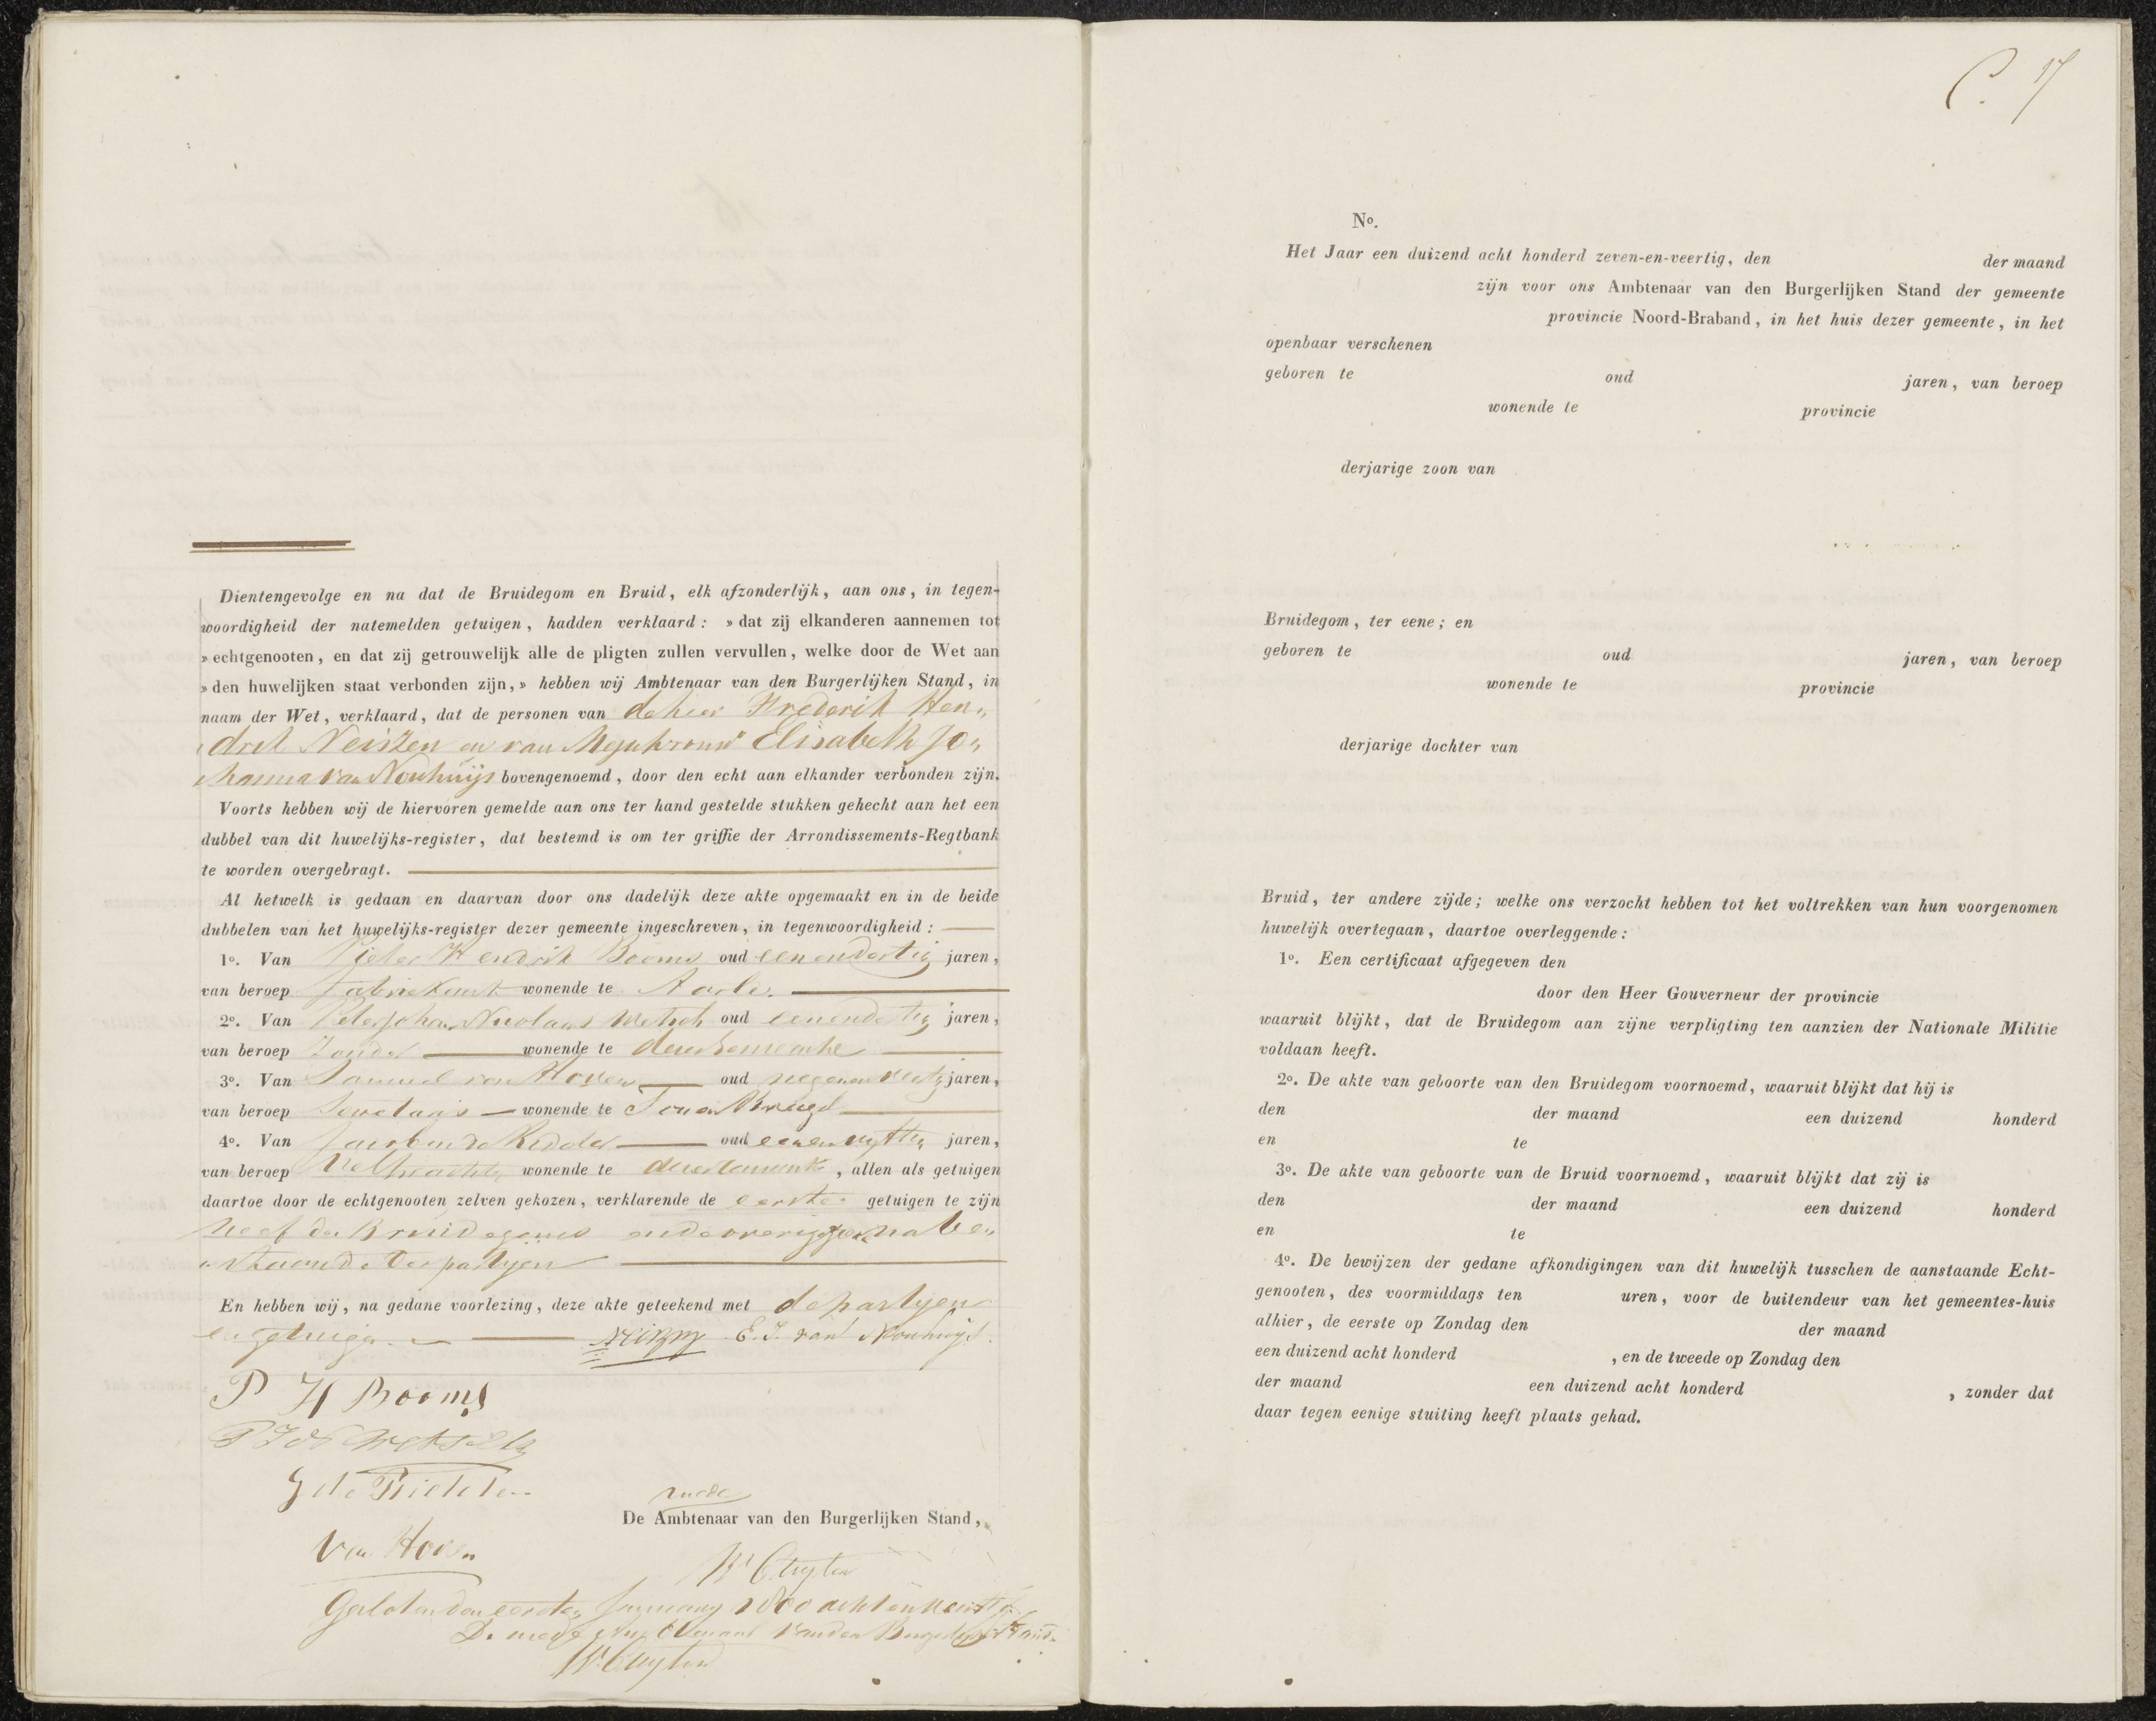 Dientengevolge en na dat de Bruidegom en Bruid, elk afzonderlijk, aan ons, in tegen-
woordigheid der natemelden getuigen, hadden verklaard: » dat zij elkanderen aannemen tot
» echtgenooten, en dat zij getrouwelijk alle de pligten zullen vervullen, welke door de Wet aan
» den huwelijken staat verbonden zijn,» hebben wij Ambtenaar van den Burgerlijken Stand, in
naam der Wet, verklaard, dat de personen van de heer Frederik Hen„
drik Neiszen en van Mejuhvrouw Elisabeth Jo„
hanna van Nouhuijs bovengenoemd, door den echt aan elkander verbonden zijn.
Voorts hebben wij de hiervoren gemelde aan ons ter hand gestelde stukken gehecht aan het een
dubbel van dit huwelijks-register, dat bestemd is om ter griffie der Arrondissements-Regtbank
te worden overgebragt.
Al hetwelk is gedaan en daarvan door ons dadelijk deze akte opgemaakt en in de beide
dubbelen van het huwelijks-register dezer gemeente ingeschreven, in tegenwoordigheid:
1º. Van Pieter Hendrik Booms oud eenendertig jaren,
van beroep fabriekant wonende te Aarle.
2º. Van Peter Johan Nicolaas oud eenendertig jaren,
van beroep zonder wonende te
3º. Van Samuel van Hoven oud negenenveertig jaren,
van beroep Secretaris wonende te Son en Breugel
4º. Van de Ridder oud eenenvyftig jaren,
van beroep wonende te dezer Gemeente, allen als getuigen
daartoe door de echtgenooten zelven gekozen, verklarende de eerste getuigen te zijn
neef der Bruidegoms en de overige geene na be„
„staande der partyen
En hebben wij, na gedane voorlezing, deze akte geteekend met de partyen
en getuigen E. J. van Nouhuijs.
P H Booms
P J N
G de Ridder
Van Hoven
mede
De Ambtenaar van den Burgerlijken Stand,
Gesloten den eersten January 1800 acht en veertig
De mede Ambtenaar van den Burgerlyken Stand.
C. 17
Nº.
Het Jaar een duizend acht honderd zeven-en-veertig, den der maand
zijn voor ons Ambtenaar van den Burgerlijken Stand der gemeente
provincie Noord-Braband, in het huis dezer gemeente, in het
openbaar verschenen
geboren te oud jaren, van beroep
wonende te provincie
derjarige zoon van
Bruidegom, ter eene; en
geboren te oud jaren, van beroep
wonende te provincie
derjarige dochter van
Bruid, ter andere zijde; welke ons verzocht hebben tot het voltrekken van hun voorgenomen
huwelijk overtegaan, daartoe overleggende:
1º. Een certificaat afgegeven den
door den Heer Gouverneur der provincie
waaruit blijkt, dat de Bruidegom aan zijne verpligting ten aanzien der Nationale Militie
voldaan heeft.
2º. De akte van geboorte van den Bruidegom voornoemd, waaruit blijkt dat hij is
den der maand een duizend honderd
en te
3º. De akte van geboorte van de Bruid voornoemd, waaruit blijkt dat zij is
den der maand een duizend honderd
en te
4º. De bewijzen der gedane afkondigingen van dit huwelijk tusschen de aanstaande Echt-
genooten, des voormiddags ten uren, voor de buitendeur van het gemeentes-huis
alhier, de eerste op Zondag den der maand
een duizend acht honderd , en de tweede op Zondag den
der maand een duizend acht honderd , zonder dat
daar tegen eenige stuiting heeft plaats gehad.